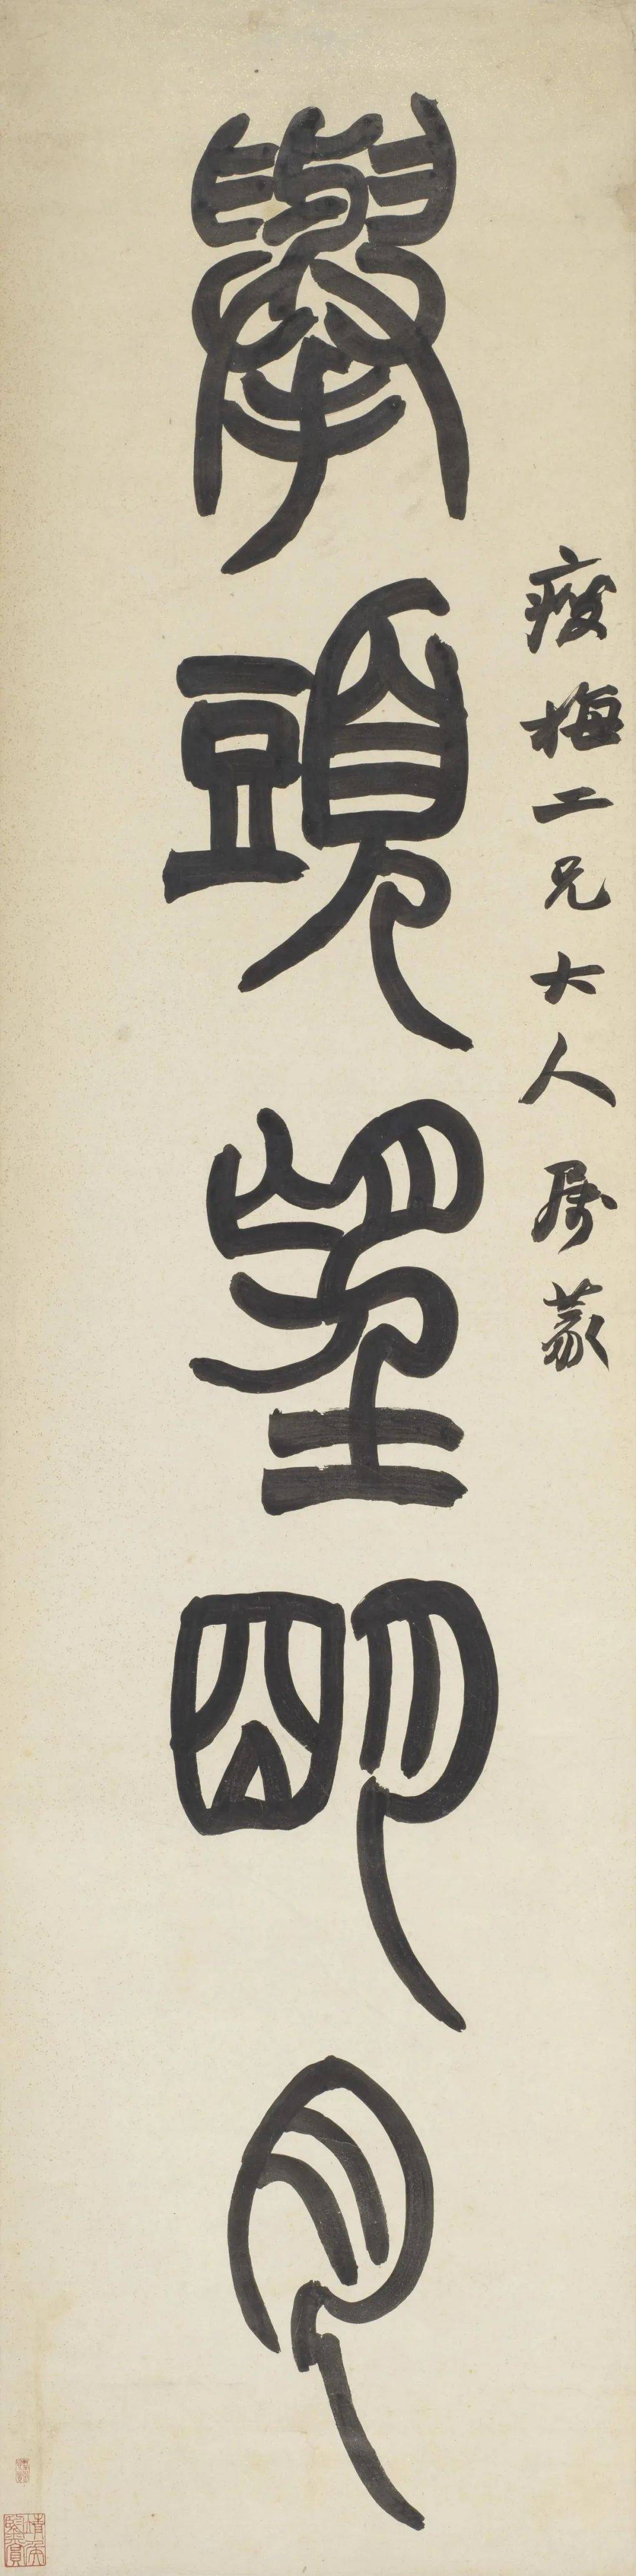 瘦梅二兄大人屬篆
舉頭望明月